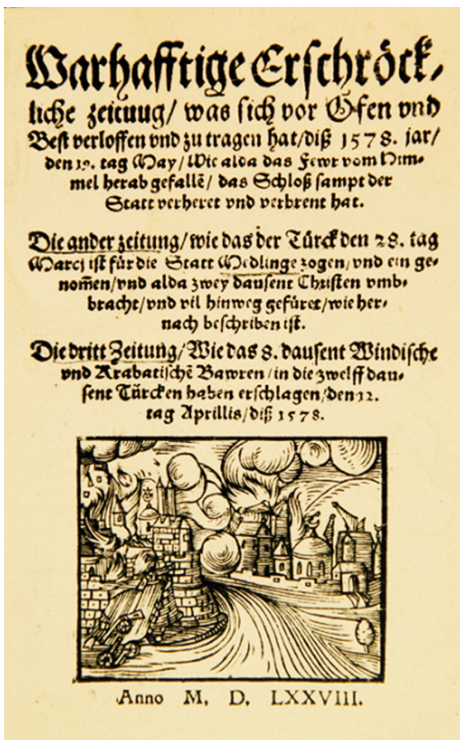 Warhafftige Erschröck-
liche zeituug/ was sich vor Ofen vnd
Best verloffen vnd zu tragen hat/diß 1578. jar/
den 19. tag May/ Wie alda das Fewr vom Him-
mel herab gefallē/ das Schloß sampt der
Statt verheret vnd verbrent hat.
Die ander zeitung/ wie das der Türck den 28. tag
Marcj ist für die Statt Medlinge zogen/ vnd ein ge-
nom̄en/ vnd alda zwey dausent Christen vmb-
bracht/ vnd vil hinweg gefüret/ wie her-
nach beschriben ist.
Die dritt Zeitung/ Wie das 8. dausent Windische
vnd Krabatischē Bawren/ in die zwelff dau-
sent Türcken haben erschlagen/ den 12.
tag Aprillis/ diß 1578.
Anno M. D. LXXVIII.